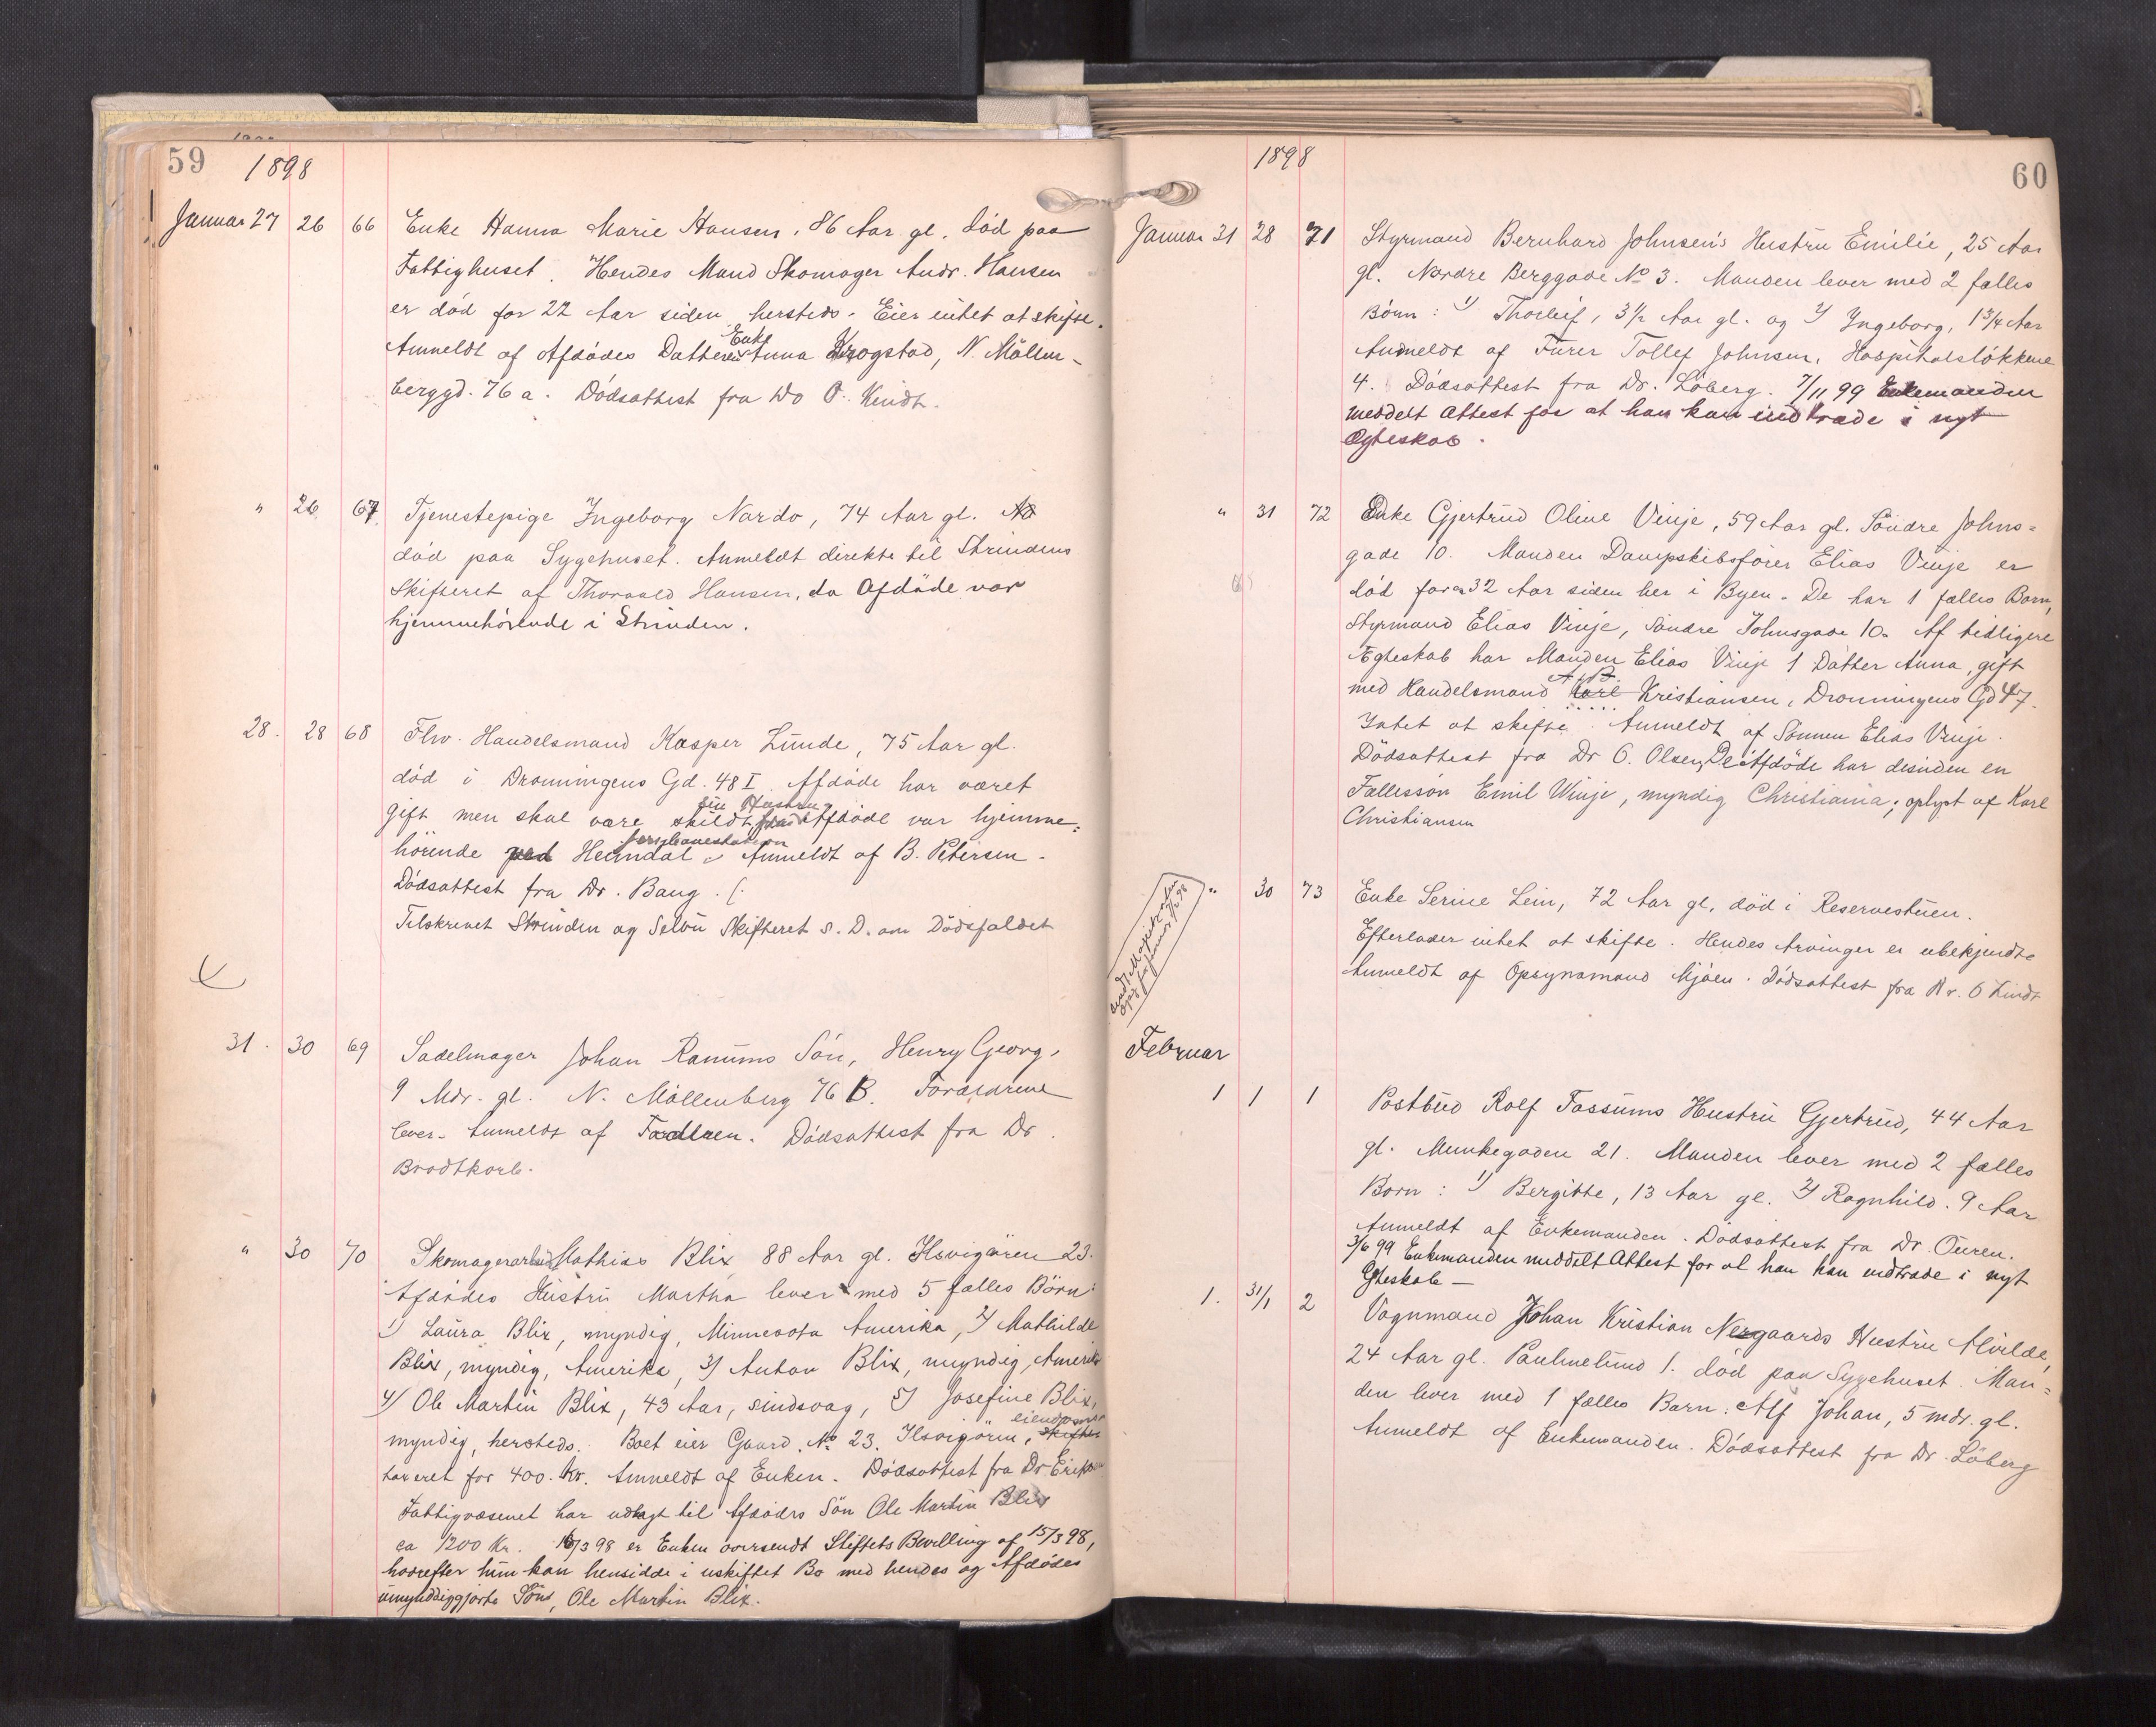 59
1898
Januar 27 26 66 Enke Hanna Marie Hansen, 86 Aar gl. død paa
Fattighuset. Hendes Mand Skomager Andr. Hansen
er död for 22 Aar siden hersteds. Eier intet at skifte.
Anmeldt af Afdödes Datter Enke Anna Krogstad, N. Möllen-
berggd. 76 a. Dödsattest fra Do O. Kindt.
" 26 67. Tjenestepige Ingeborg Nardo, 74 Aar gl.
död paa Sygehuset. Anmeldt direkte til Strindens
Skifteret af Thorvald Hansen, da Afdöde var
hjemmehörende i Strinden.
28. 28 68 Fhv. Handelsmand Kasper Lunde, 75 Aar gl.
död i Dronningens Gd. 48 I. Afdöde har været
gift men skal være skildt fra sin Hustru Afdöde var hjemme-
hörende ved Heimdal Jernbanestation. Anmeldt af B. Petersen.
Dödsattest fra Dr. Bang. (.
Tilskrevet Strinden og Selbu Skifteret s. D. om Dödsfaldet
31. 30 69 Sadelmager Johan Ranums Sön, Henry Georg,
9 Mdr. gl. N. Möllenberg 76 B. Forældrene
lever. Anmeldt af Faderen. Dödsattest fra Dr.
Brodtkorb.
" 30 70 Skomagerarbeid Mathias Blix 88 Aar gl. Ilsvigören 23.
Afdödes Hustru Martha lever med 5 fælles Börn:
1) Laura Blix, myndig, Minnesota Amerika, 2) Mathilde
Blix, myndig, Amerika, 3) Anton Blix, myndig, Amerika
4) Ole Martin Blix, 43 Aar, sindsvag, 5) Josefine Blix,
myndig, hersteds. Boet eier Gaard No 23. Ilsvigören, skifte eiendomm
taxeret for 400. Kr. Anmeldt af Enken. Dödsattest fra Dr Eriksen
Fattigvæsenet har udlagt til Afdödes Sön Ole Martin Blix
ca 1200 Kr. 16/3 98 er Enken oversendt Stiftets Bevilling af 15/3 98,
hvorefter hun kan hensidde i uskiftet Bo med hendes og Afdödes
umyndiggjorte Sön, Ole Martin Blix.
60
1898
Januar 31 28 71 Styrmand Bernhard Johnsen's Hustru Emilie, 25 Aar
gl. Nordre Berggade No 3. Manden lever med 2 fælles
Börn: 1) Thorleif, 3 1/2 Aar gl. og 2) Ingeborg, 1 3/4 Aar
Anmeldt af Furer Tollef Johnsen, Hospitalslökkene
4. Dödsattest fra Dr. Löberg. 7/11 99 Enkemanden
meddelt Attest for at han kan indtræde i nyt
Ægteskab.
" 31 72 Enke Gjertrud Oline Vinje, 59 Aar gl. Söndre Johns-
gade 10. Manden Dampskibsförer Elias Vinje er
död for ca 32 Aar siden her i Byen. De har 1 fælles Barn,
Styrmand Elias Vinje, Söndre Johnsgade 10. Af tidligere
Ægteskab har Manden Elias Vinje 1 Datter Anna, gift
med Handelsmand Karl Kristiansen, Dronningens Gd 47.
Intet at skifte. Anmeldt af Sönnen Elias Vinje.
Dödsattest fra Dr O. Olsen, De Afdöde har desuden en
Fællessön Emil Winje, myndig Christiania; oplyst af Karl
Christiansen
" 30 73 Enke Serine Lein, 72 Aar gl, död i Reservestuen.
Efterlader intet at skifte. Hendes Arvinger er ubekjendte
Anmeldt af Opsynsmand Mjöen. Dödsattest fra Dr. O Kindt
Februar
1 1 1 Postbud Rolf Fossums Hustru Gjertrud, 44 Aar
gl. Munkegaden 21. Manden lever med 2 fælles
Börn: 1) Bergitte, 13 Aar gl. 2) Ragnhild. 9 Aar
Anmeldt af Enkemanden. Dödsattest fra Dr. Ouren.
3/6 99 Enkemanden meddelt Attest for at han kan indtræde i nyt
Ægteskab —
1. 31/1 2 Vognmand Johan Kristian Nergaards Hustru Alvilde,
24 Aar gl. Paulinelund 1. död paa Sygehuset. Man-
den lever med 1 fælles Barn: Alf Johan, 5 mdr. gl.
Anmeldt af Enkemanden. Dödsattest fra Dr. Löberg